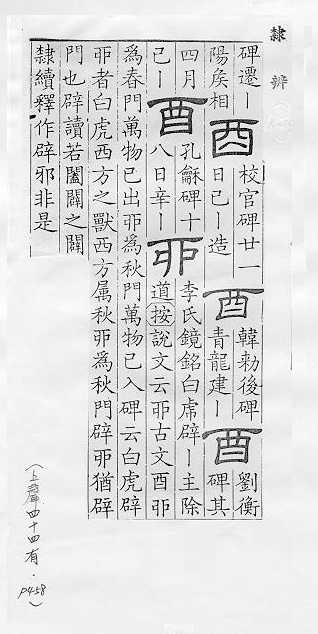 隸辨
碑遷丨
陽矦相
酉
核官碑廿一
日己丨造
酉
韓勑後碑
青龍建丨
酉
劉衡
碑其
四月
己丨
酉
孔龢碑十
八日辛丨
丣
李氏鏡銘白虎辟丨主除
道按說文云丣古文酉丣
為春門萬物已出丣為秋門萬物已入碑云白虎辟
丣者白虎西方之獸西方属秋丣為秋門辟丣猶辟
門也辟讀若闔闢之闢
隸續釋作辟邪非是
(上聲四十四有. P458)